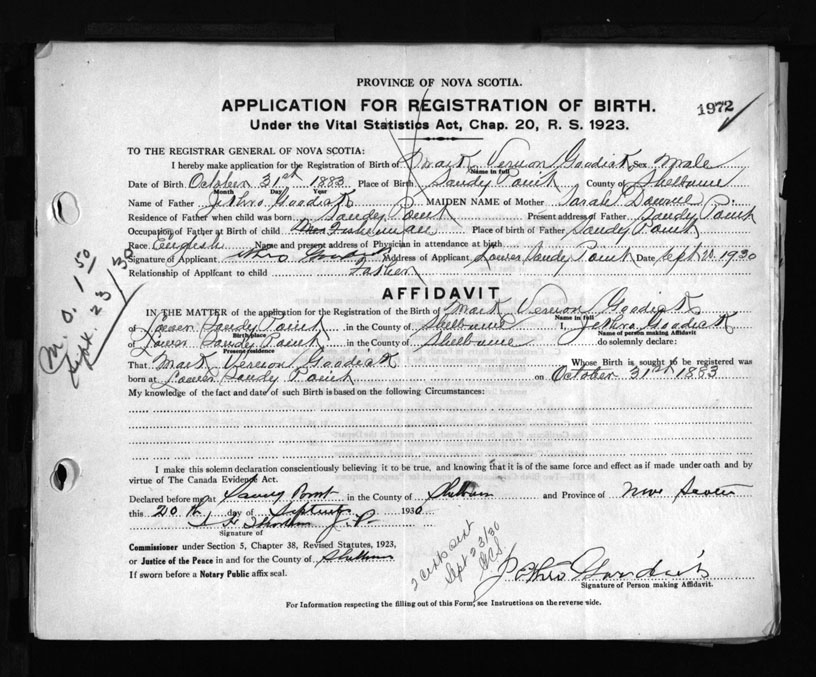 PROVINCE OF NOVA SCOTIA.
APPLICATION FOR REGISTRATION OF BIRTH.
1972
Under the Vital Statistics Act, Chap. 20, R. S. 1923.
TO THE REGISTRAR GENERAL OF NOVA SCOTIA:
I hereby make application for the Registration of Birth of Mark Vernon Goodick Sex Male
Name in full
Date of Birth October 31st 1883 Place of Birth Sandy Point County of Shelburne
Month Day Year
Name of Father Jethro Goodick MAIDEN NAME of Mother Sarah
Residence of Father when child was born Sandy Point Present address of Father Sandy Point
Occupation of Father at Birth of child Fisherman Place of birth of Father Sandy Point
Race English Name and present address of Physician in attendance at birth
Signature of Applicant Address of Applicant Lower Sandy Point Date Sept 20. 1930
Relationship of Applicant to child Father
M. O. 1 50
Sept. 23/30
AFFIDAVIT
IN THE MATTER of the application for the Registration of the Birth of Mark Vernon Goodick
Name in full
of Lower Sandy Point in the County of Shelburne I, Jethro Goodick
Birthplace Name of person making Affidavit
of Lower Sandy Point in the County of Shelburne do solemnly declare:
Present residence
That Mark Vernon Goodick Whose Birth is sought to be registered was
born at Lower Sandy Point on October 31st 1883
My knowledge of the fact and date of such Birth is based on the following Circumstances:
I make this solemn declaration conscientiously believing it to be true, and knowing that it is of the same force and effect as if made under oath and by
virtue of The Canada Evidence Act.
Declared before me at Sandy Point in the County of Shelburne and Province of Nova Scotia
this 20th day of September 1930
J. P.
Signature of
Commissioner under Section 5, Chapter 38, Revised Statutes, 1923,
or Justice of the Peace in and for the County of Shelburne
If sworn before a Notary Public affix seal.
2 cert sent
Sept 23/30
Jethro Goodick
Signature of Person making Affidavit.
For Information respecting the filling out of this Form, see Instructions on the reverse side.